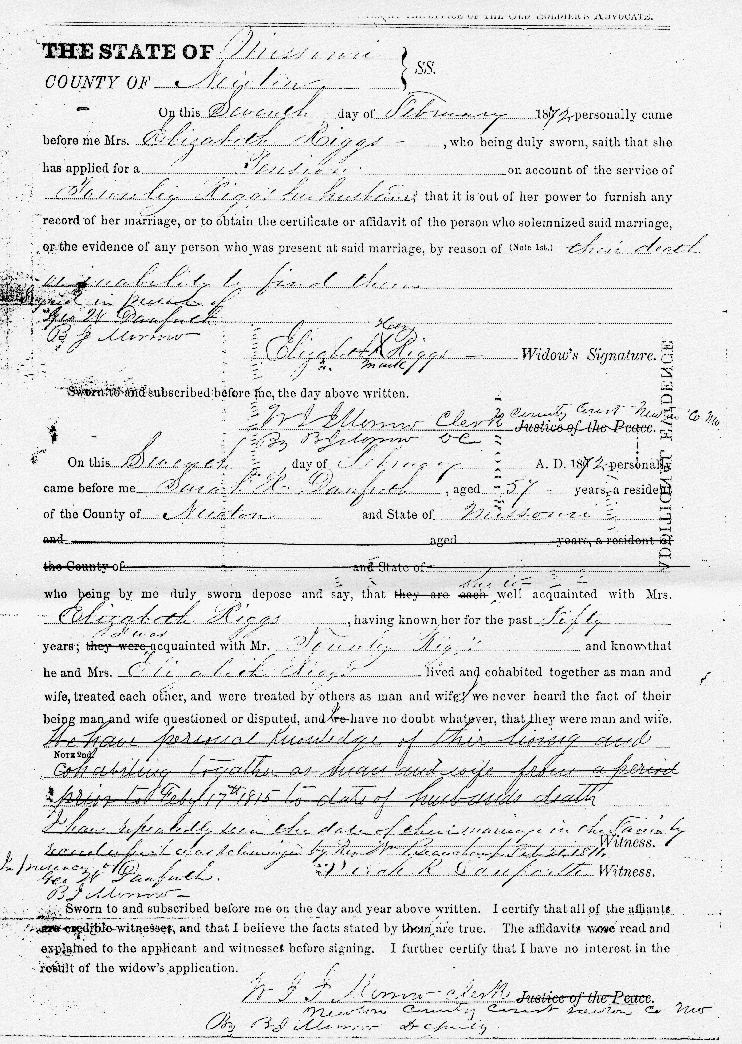 OFFICE OF THE OLD SOLDIER'S ADVOCATE.
THE STATE OF Missouri
COUNTY OF Newton } SS.
On this Seventh day of February 1872 personally came
before me Mrs. Elizabeth Riggs, who being duly sworn, saith that she
has applied for a Pension on account of the service of
Townley Riggs her husband that it is out of her power to furnish any
record of her marriage, or to obtain the certificate or affidavit of the person who solemnized said marriage,
or the evidence of any person who was present at said marriage, by reason of (Note 1st.) their death
or inability to find them
Signed in presence of
Geo W Danforth
B J Morrow
her
Elizabeth X Riggs Widow's Signature.
mark
Sworn to and subscribed before me, the day above written.
W J J Morrow Clerk County Court Newton Co Mo
Justice of the Peace.
By B J Morrow DC
ADDITIONAL EVIDENCE
On this Seventh day of February A. D. 1872 personally
came before me Sarah R. Danforth, aged 57 years, a resident
of the County of Newton and State of Missouri
and aged years, a resident of
the County of and State of
she is
who being by me duly sworn depose and say, that they are each well acquainted with Mrs.
Elizabeth Riggs, having known her for the past Fifty
years; they were acquainted with Mr. Townley Riggs and know that
I was
he and Mrs. Elizabeth Riggs lived and cohabited together as man and
wife, treated each other, and were treated by others as man and wife; we never heard the fact of their
being man and wife questioned or disputed, and we have no doubt whatever, that they were man and wife.
We have personal knowledge of their living and
NOTE 2nd.
cohabiting together as man and wife from a period
prior to Feby 17th 1815 to date of husbands death
I have repeatedly seen the date of their marriage in the Family
Witness.
In presence of
Geo W Danforth
B J Morrow
Sarah R Danforth Witness.
Sworn to and subscribed before me on the day and year above written. I certify that all of the affiants
are credible witnesses, and that I believe the facts stated by them are true. The affidavits were read and
explained to the applicant and witnesses before signing. I further certify that I have no interest in the
result of the widow's application.
W J J Morrow Clerk Justice of the Peace.
Newton County Court Newton Co Mo
By B J Morrow Deputy